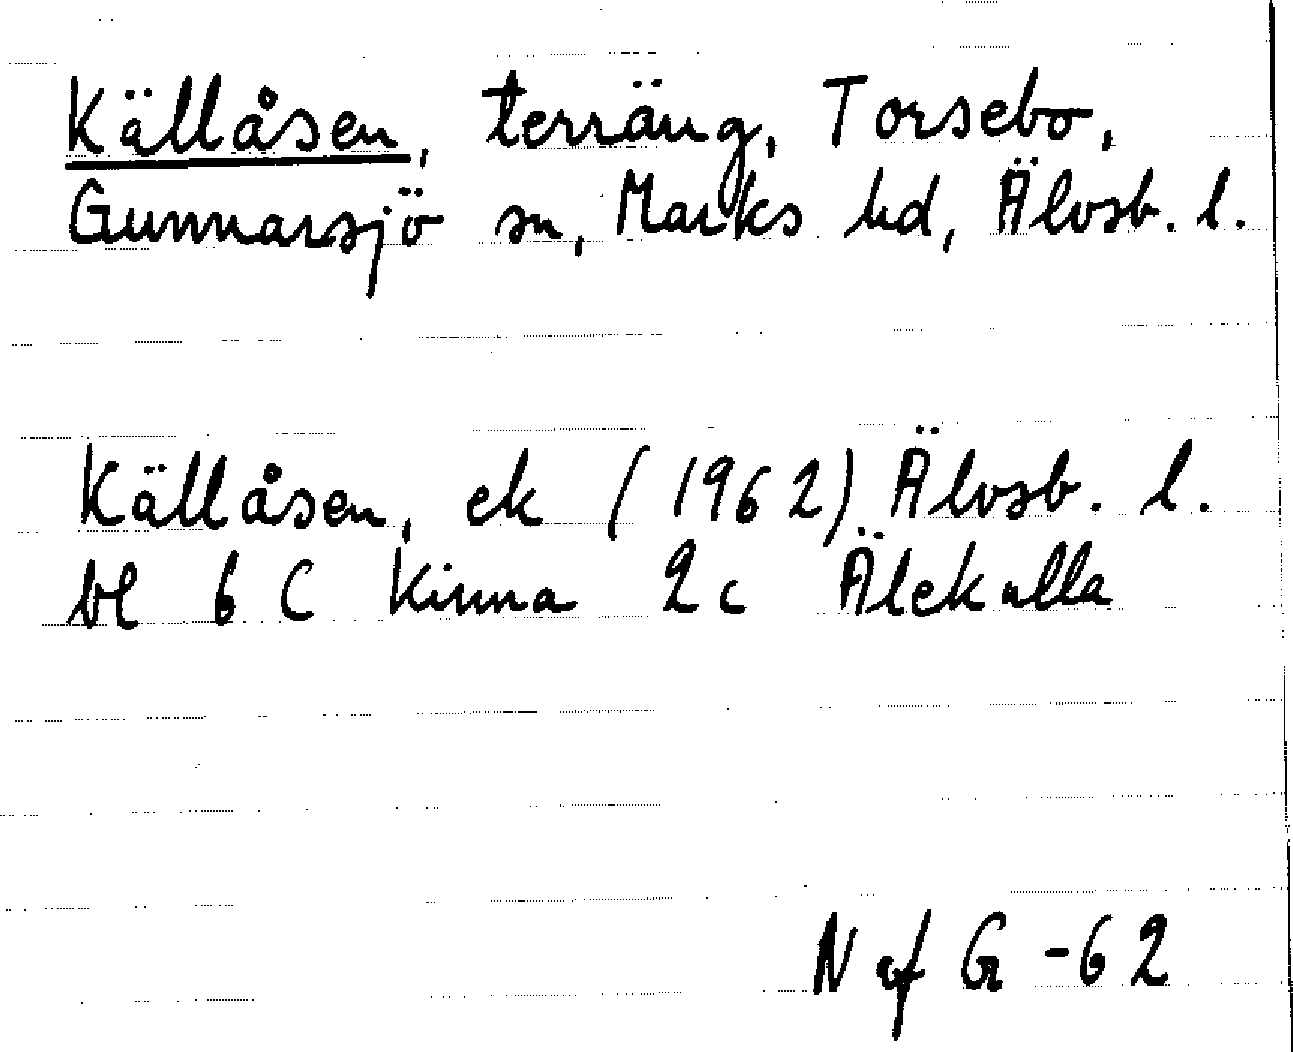 Källåsen, terräng, Torsebo,
Gunnarsjö sn, Marks hd, Älvsb. l.
Källåsen, ek (1962) Älvsb. l.
bl 6 C Kinna 2c Älekulla
N af G -62